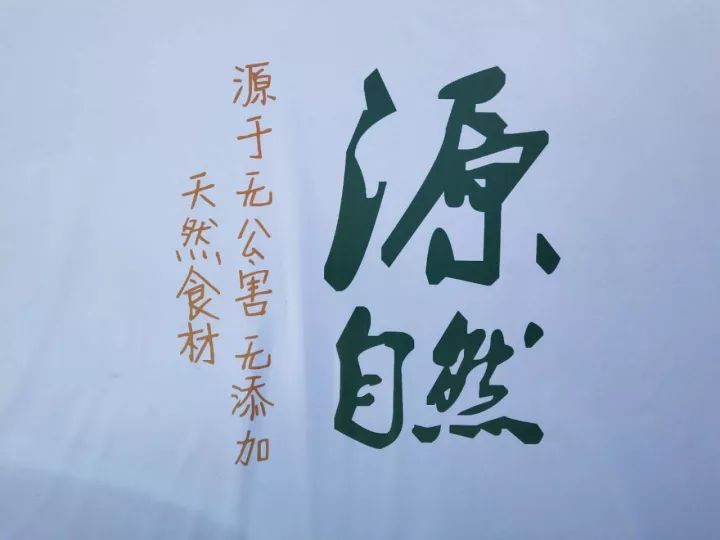 源
自然
源于无公害 无添加
天然食材